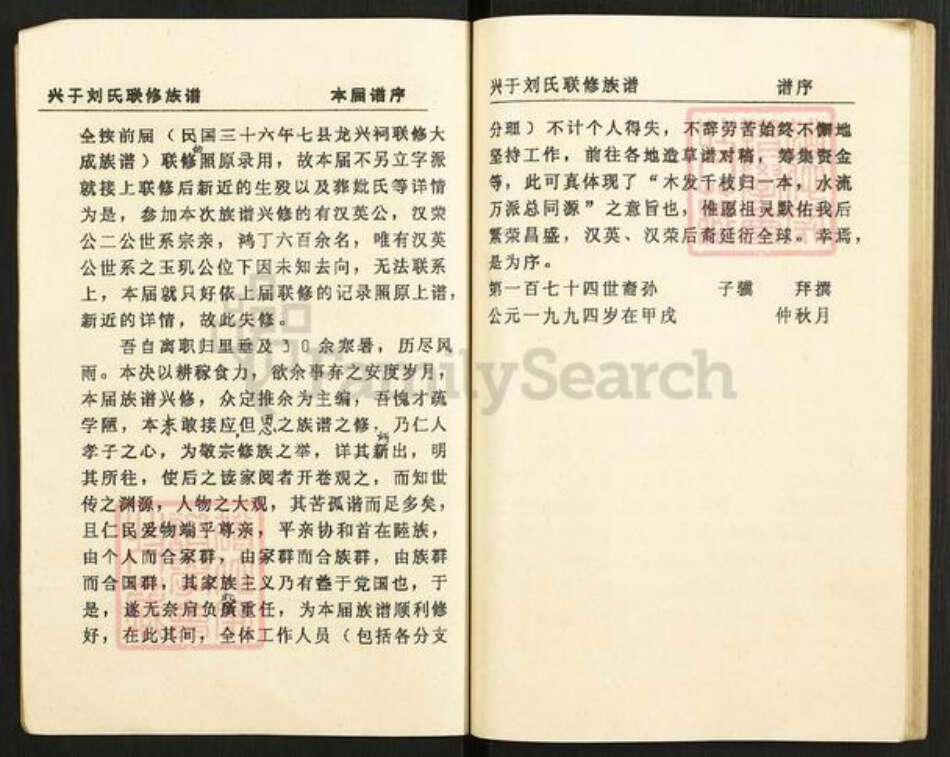 兴于刘氏联修族谱 本届谱序
全按前届（民国三十六年七县龙兴祠联修大
成族谱）联修照原录用，故本届不另立字派
就接上联修后新近的生殁以及葬妣氏等详情
为是，参加本次族谱兴修的有汉英公，汉荣
公二公世系宗亲，鸿丁六百余名，唯有汉英
公世系之玉玑公位下因未知去向，无法联系
上，本届就只好依上届联修的记录照原上谱，
新近的详情，故此失修。
吾自离职归里垂及30余寒暑，历尽风
雨。本决以耕稼食力，欲余事弃之安度岁月，
本届族谱兴修，众定推余为主编，吾愧才疏
学陋，本未敢接应但思之族谱之修，乃仁人
孝子之心，为敬宗修族之举，详其所出，明
其所往，使后之读家阅者开卷观之，而知世
传之渊源，人物之大观，其苦孤谐而足多矣，
且仁民爱物端乎尊亲，平亲协和首在睦族，
由个人而合家群，由家群而合族群，由族群
而合国群，其家族主义乃有益于党国也，于
是，遂无奈肩负重任，为本届族谱顺利修
好，在此其间，全体工作人员（包括各分支
兴于刘氏联修族谱 谱序
分理）不计个人得失，不辞劳苦始终不懈地
坚持工作，前往各地造草谱对稿，筹集资金
等，此可真体现了“木发千枝归一本，水流
万派总同源”之意旨也，惟愿祖灵默佑我后
繁荣昌盛，汉英、汉荣后裔延衍全球。幸焉，
是为序。
第一百七十四世裔孙 子骥 拜撰
公元一九九四岁在甲戌 仲秋月
FamilySearch